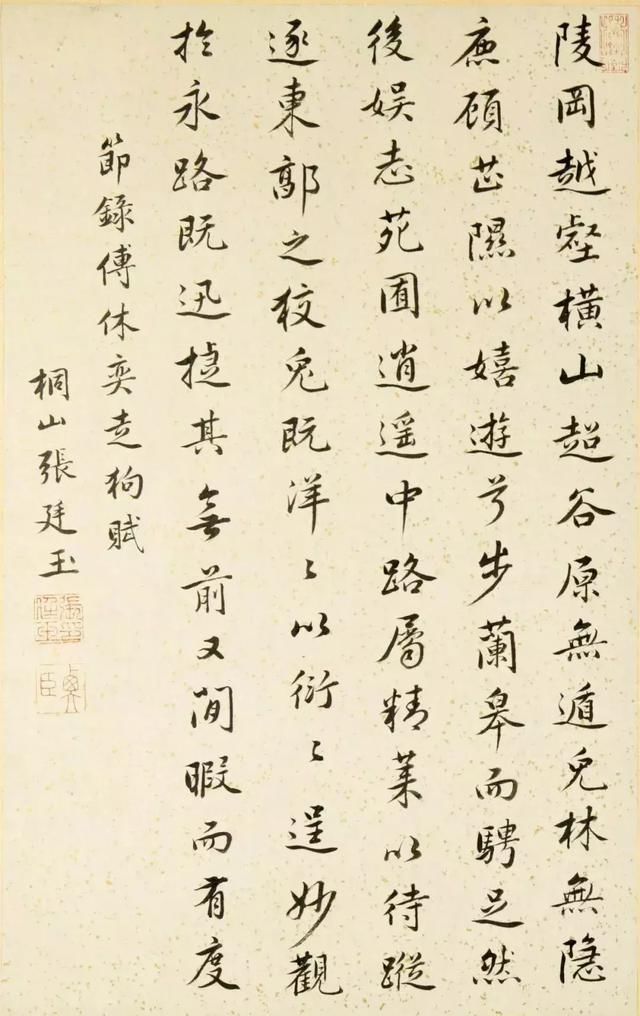 陵岡越壑橫山超谷原無遁兔林無隱
鹿顧芷隰以嬉遊兮步蘭皋而騁足然
後娛志苑囿逍遥中路屬精萊以待蹤
逐東郭之狡兔既洋〻以衍〻逞妙觀
於永路既迅捷其無前又閒暇而有度
節錄傅休奕走狗賦
桐山張廷玉